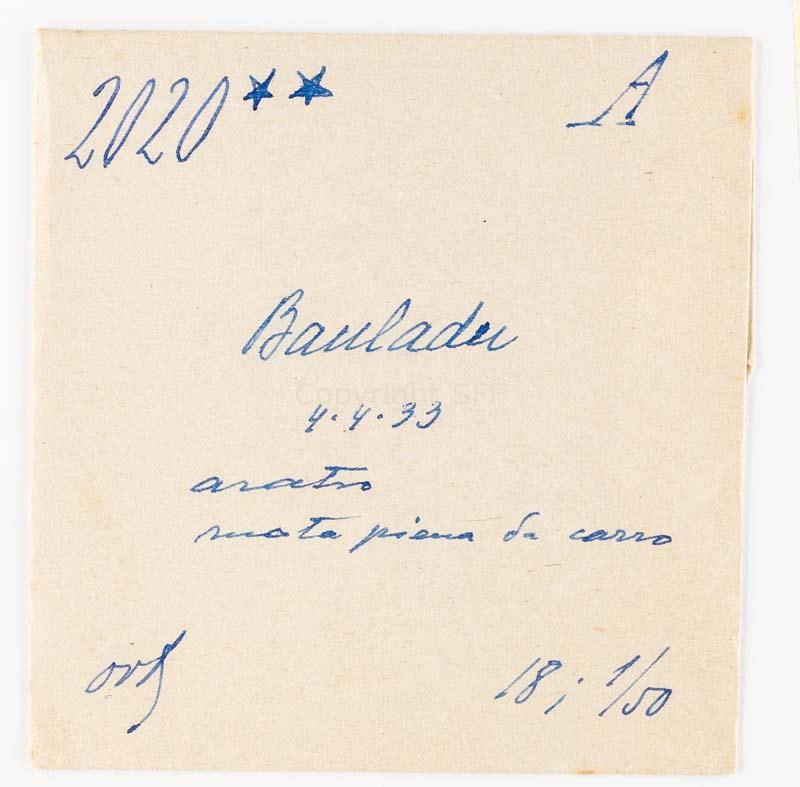 2020 ★★ A
Bauladu
4.4.33
aratro
ruota piena da carro
18; 1/50
Copyright SFF